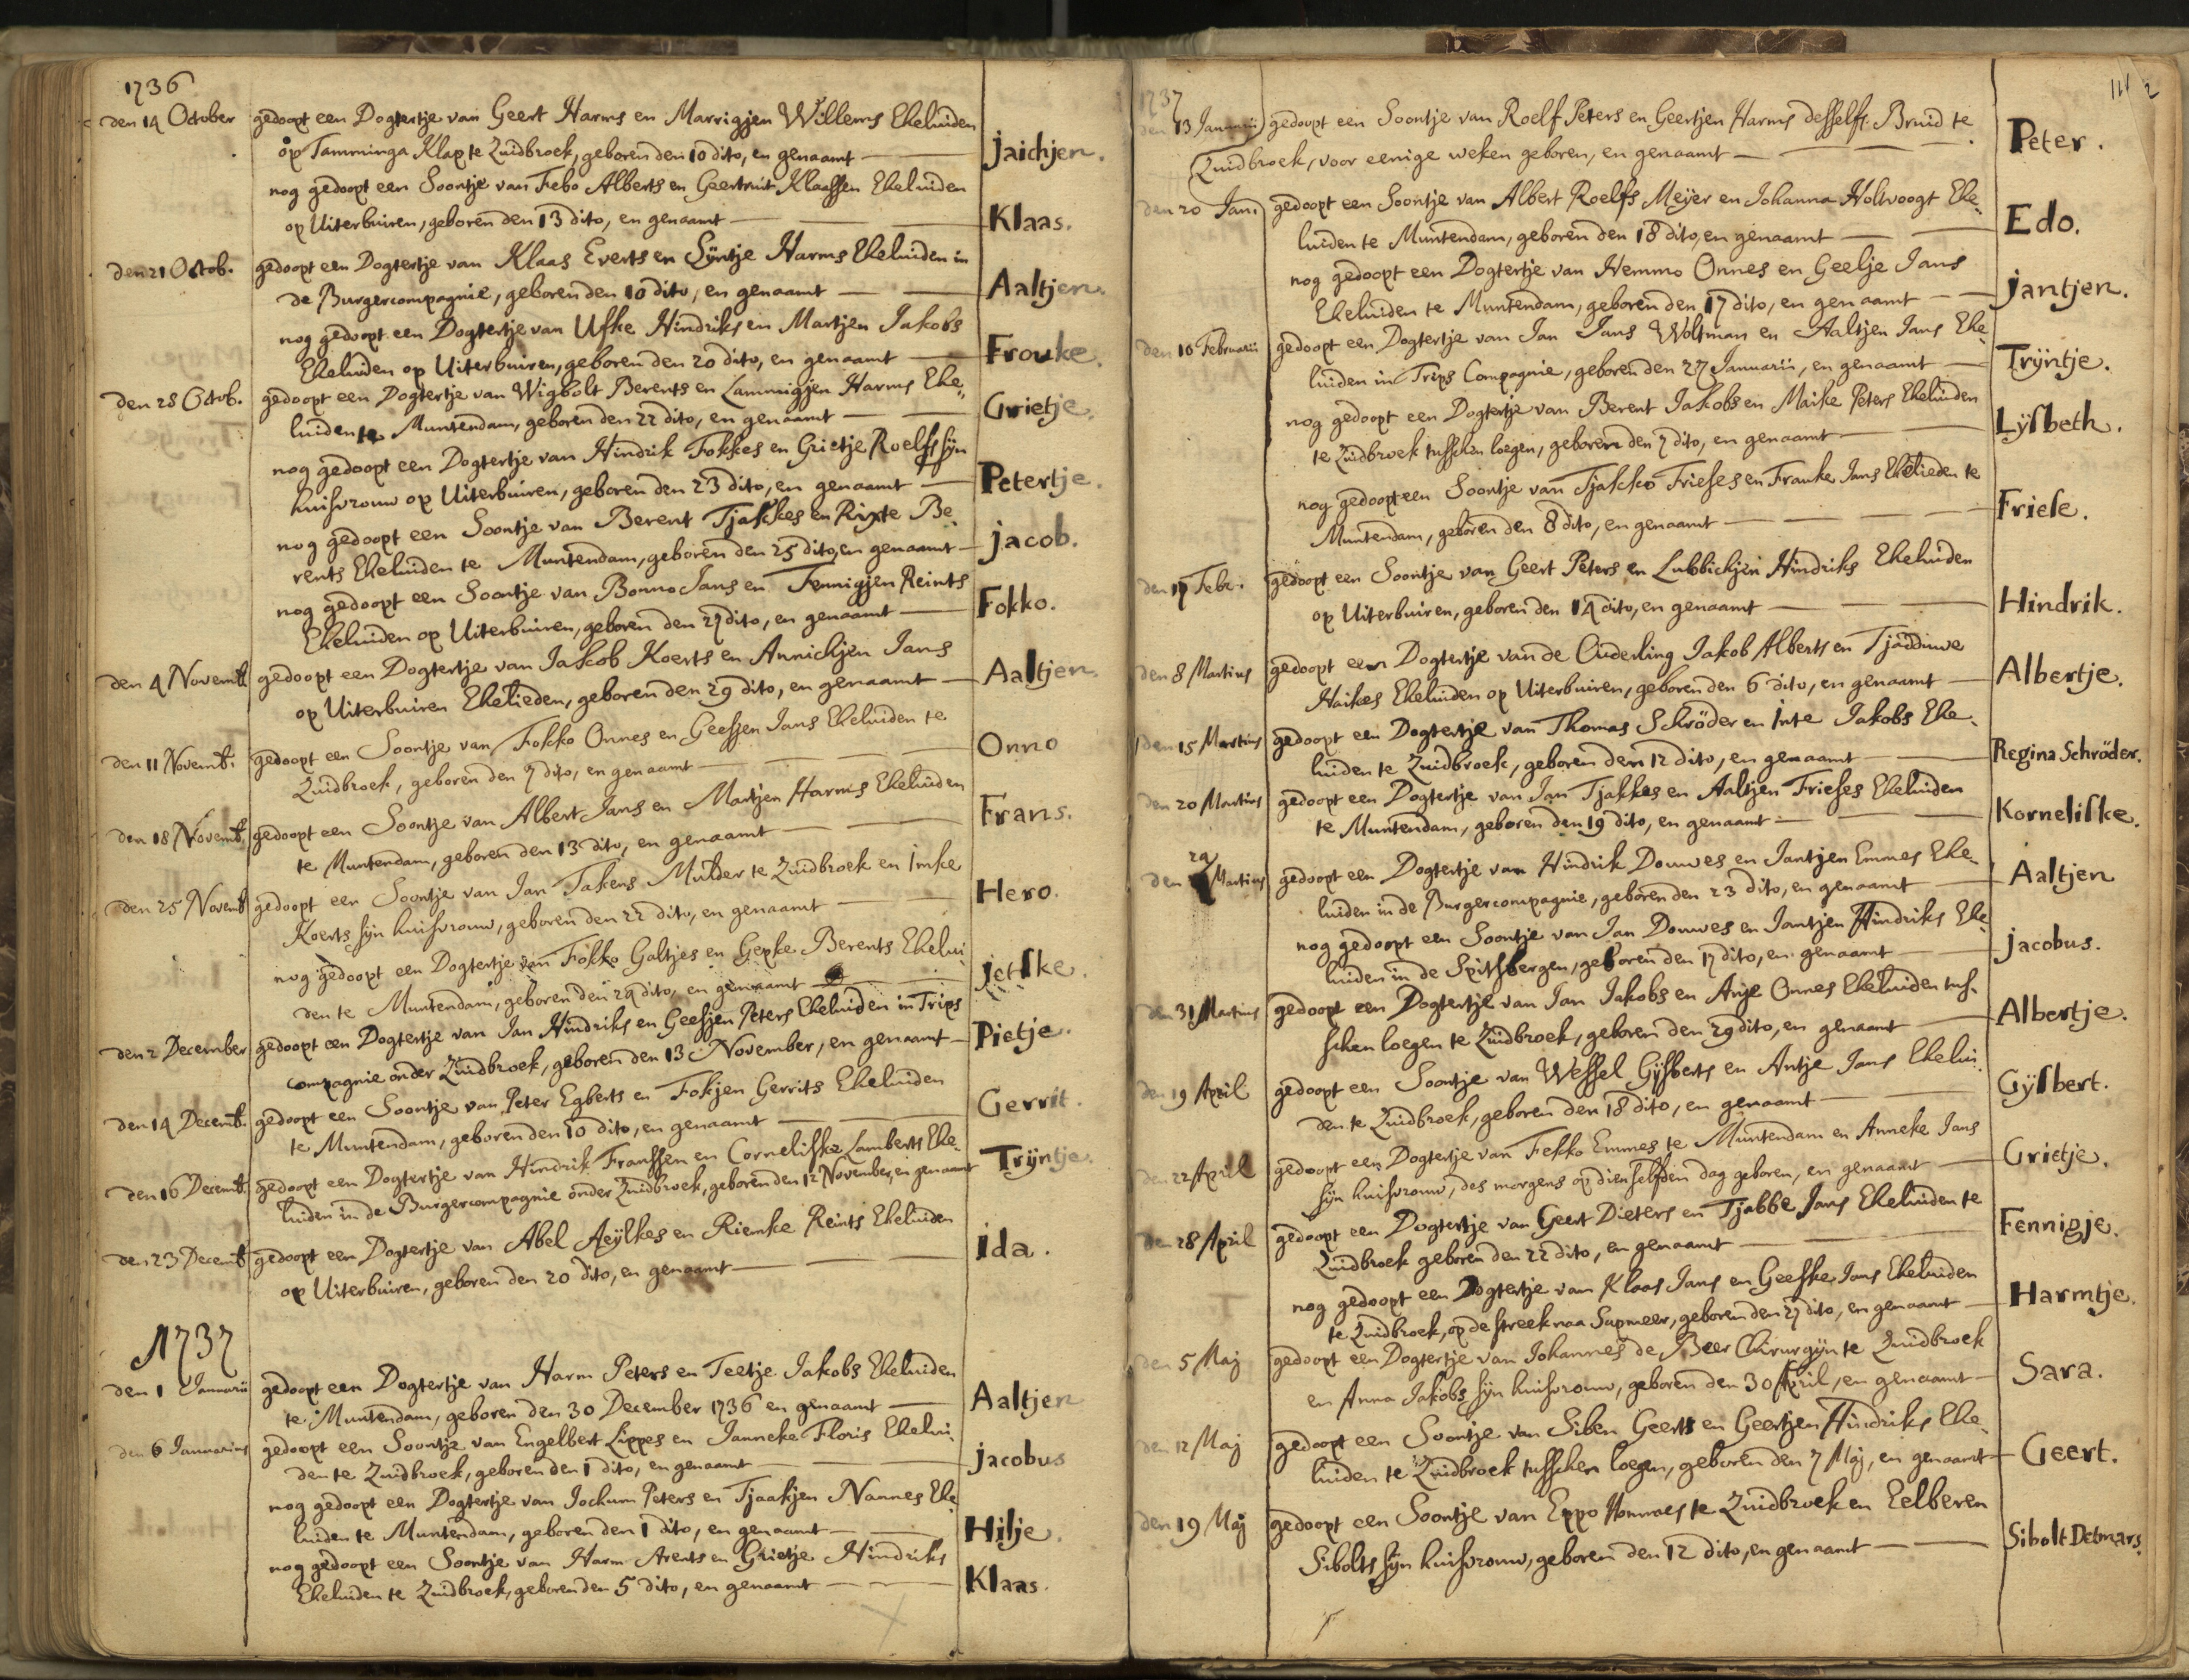 1736
den 14 October gedoopt een Dogtertje van Geert Harms en Marrigjen Willems Eheluiden
op Tamminga Klap te Zuidbroek, geboren den 10 dito, en genaamt — Jaichjen.
nog gedoopt een Soontje van Febo Alberts en Geertruit Klaassen Eheluiden
op Uiterbuiren, geboren den 13 dito, en genaamt — Klaas.
den 21 Octob. gedoopt een Dogtertje van Klaas Everts en Sÿntje Harms Eheluiden in
de Burgercompagnie, geboren den 10 dito, en genaamt — Aaltjen.
nog gedoopt een Dogtertje van Ufke Hindriks en Martjen Jakobs
Eheluiden op Uiterbuiren, geboren den 20 dito, en genaamt — Frouke.
den 28 Octob. gedoopt een Dogtertje van Wigbolt Berents en Lammigjen Harms Ehe-
luiden te Muntendam, geboren den 22 dito, en genaamt — Grietje.
nog gedoopt een Dogtertje van Hindrik Fokkes en Grietje Roelfs sÿn
huisvrouw op Uiterbuiren, geboren den 23 dito, en genaamt — Petertje.
nog gedoopt een Soontje van Berent Tjakkes en Rixte Be-
rents Eheluiden te Muntendam, geboren den 25 dito, en genaamt — Jacob.
nog gedoopt een Soontje van Bonno Jans en Fennigjen Reints
Eheluiden op Uiterbuiren, geboren den 27 dito, en genaamt — Fokko.
den 4 Novemb. gedoopt een Dogtertje van Jakob Koerts en Annichjen Jans
op Uiterbuiren Ehelieden, geboren den 29 dito, en genaamt — Aaltjen
den 11 Novemb. gedoopt een Soontje van Fokko Onnes en Geessjen Jans Eheluiden te
Zuidbroek, geboren den 7 dito, en genaamt — Onno
den 18 Novemb. gedoopt een Soontje van Albert Jans en Martjen Harms Eheluiden
te Muntendam, geboren den 13 dito, en genaamt — Frans.
den 25 Novemb. gedoopt een Soontje van Jan Takens Mulder te Zuidbroek en Imke
Koerts sÿn huisvrouw, geboren den 22 dito, en genaamt — Hero.
nog gedoopt een Dogtertje van Fokko Galtjes en Gepke Berents Ehelui-
den te Muntendam, geboren den 24 dito, en genaamt — Jetske.
den 2 December gedoopt een Dogtertje van Jan Hindriks en Geesjen Peters Eheluiden in Trips
compagnie onder Zuidbroek, geboren den 13 November, en genaamt — Pietje.
den 14 Decemb. gedoopt een Soontje van Peter Egberts en Fokjen Gerrits Eheluiden
te Muntendam, geboren den 10 dito, en genaamt — Gerrit.
den 16 Decemb. gedoopt een Dogtertje van Hindrik Franssen en Corneliske Lamberts Ehe-
luiden in de Burgercompagnie onder Zuidbroek, geboren den 12 November, en genaamt Trÿntje.
den 23 Decemb. gedoopt een Dogtertje van Abel Aeÿlkes en Riemke Reints Eheluiden
op Uiterbuiren, geboren den 20 dito, en genaamt — Ida.
1737
den 1 Januarii gedoopt een Dogtertje van Harm Peters en Teetje Jakobs Eheluiden
te Muntendam, geboren den 30 December 1736 en genaamt — Aaltjen
den 6 Januarius gedoopt een Soontje van Engelbert Lippes en Janneke Floris Ehelui-
den te Zuidbroek, geboren den 1 dito, en genaamt — Jacobus
nog gedoopt een Dogtertje van Jochum Peters en Tjaakjen Nannes Ehe-
luiden te Muntendam, geboren den 1 dito, en genaamt — Hilje.
nog gedoopt een Soontje van Harm Arents en Grietje Hindriks
Eheluiden te Zuidbroek, geboren den 5 dito, en genaamt — Klaas.
1737
den 13 Januarii gedoopt een Soontje van Roelf Peters en Geertjen Harms desselfs Bruid te
Zuidbroek, voor eenige weken geboren, en genaamt — Peter.
den 20 Jan. gedoopt een Soontje van Albert Roelfs Meÿer en Johanna Holtvoogt Ehe-
luiden te Muntendam, geboren den 18 dito, en genaamt — Edo.
nog gedoopt een Dogtertje van Hemmo Onnes en Geelje Jans
Eheluiden te Muntendam, geboren den 17 dito, en genaamt — Jantjen.
den 10 Februarii gedoopt een Dogtertje van Jan Jans Woltman en Aaltjen Jans Ehe-
luiden in Trips Compagnie, geboren den 27 Januarii, en genaamt — Trÿntje.
nog gedoopt een Dogtertje van Berent Jakobs en Maike Peters Eheluiden
te Zuidbroek tusschen loegen, geboren den 7 dito, en genaamt — Lÿsbeth.
nog gedoopt een Soontje van Tjakko Frieses en Frauke Jans Ehelieden te
Muntendam, geboren den 8 dito, en genaamt — Friese.
den 17 Febr. gedoopt een Soontje van Geert Peters en Lubbichjen Hindriks Eheluiden
op Uiterbuiren, geboren den 14 dito, en genaamt — Hindrik.
den 8 Martius gedoopt een Dogtertje van de Ouderling Jakob Alberts en Tjadduwe
Haikes Eheluiden op Uiterbuiren, geboren den 6 dito, en genaamt — Albertje.
den 15 Martius gedoopt een Dogtertje van Thomas Schröder en Inte Jakobs Ehe-
luiden te Zuidbroek, geboren den 12 dito, en genaamt — Regina Schröder.
den 20 Martius gedoopt een Dogtertje van Jan Tjakkes en Aaltjen Frieses Eheluiden
te Muntendam, geboren den 19 dito, en genaamt — Korneliske.
den 24 Martius gedoopt een Dogtertje van Hindrik Douwes en Jantjen Emmes Ehe-
luiden in de Burgercompagnie, geboren den 23 dito, en genaamt — Aaltjen
nog gedoopt een Soontje van Jan Douwes en Jantjen Hindriks Ehe-
luiden in de Spitsbergen, geboren den 17 dito, en genaamt — Jacobus.
den 31 Martius gedoopt een Dogtertje van Jan Jakobs en Anje Onnes Eheluiden tus-
schen loegen te Zuidbroek, geboren den 29 dito, en genaamt — Albertje.
den 19 April gedoopt een Soontje van Wessel Gÿsberts en Antje Jans Ehelui-
den te Zuidbroek, geboren den 18 dito, en genaamt — Gÿsbert.
den 22 April gedoopt een Dogtertje van Fekko Emmes te Muntendam en Anneke Jans
sÿn huisvrouw, des morgens op dienselfden dag geboren, en genaamt — Grietje.
den 28 April gedoopt een Dogtertje van Geert Dieters en Tjabbe Jans Eheluiden te
Zuidbroek geboren den 22 dito, en genaamt — Fennigje.
nog gedoopt een Dogtertje van Klaas Jans en Geeske Jans Eheluiden
te Zuidbroek, op de streek naa Sapmeer, geboren den 27 dito, en genaamt — Harmtje.
den 5 Maj gedoopt een Dogtertje van Johannes de Beer Chirurgÿn te Zuidbroek
en Anna Jakobs sÿn huisvrouw, geboren den 30 April, en genaamt — Sara.
den 12 Maj gedoopt een Soontje van Siben Geerts en Geertjen Hindriks Ehe-
luiden te Zuidbroek tusschen loegen, geboren den 7 Maj, en genaamt — Geert.
den 19 Maj gedoopt een Soontje van Eppo Nonnes te Zuidbroek en Eelberen
Sibolts sÿn huisvrouw, geboren den 12 dito, en genaamt — Sibolt Detmars.